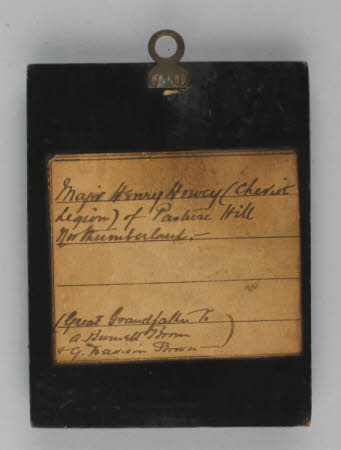 Major Henry Howey (Cheviot
Legion) of Pasture Hill
Northumberland.—
(Great Grandfather to
A. Burnett Brown
& G. Brown)